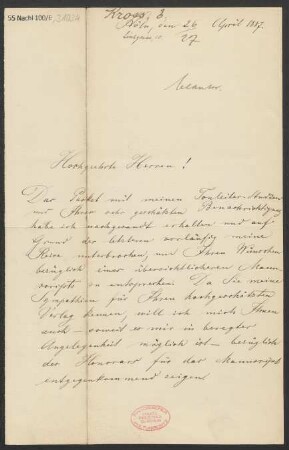 55 Nachl 100/B,
Kross, E.
Köln, den 26 April 1887.
27
Hochgeehrte Herren!
Das Packet mit meinen Tonleiter-Studien
und Ihrer sehr geschätzten Benachrichtigung
habe ich nachgesandt erhalten und auf
Grund der letztern vorläufig meine
Reise unterbrochen, um Ihren Wünschen
bezüglich einer übersichtlicheren Manu-
scripts zu entsprechen. Da Sie meine
Sympathien für Ihren hochgeschätzten
Verlag kennen, will ich mich Ihnen
auch – soweit es mir in beregter
Angelegenheit möglich ist – bezüglich
des Honorars für das Manuscript
entgegenkommend zeigen